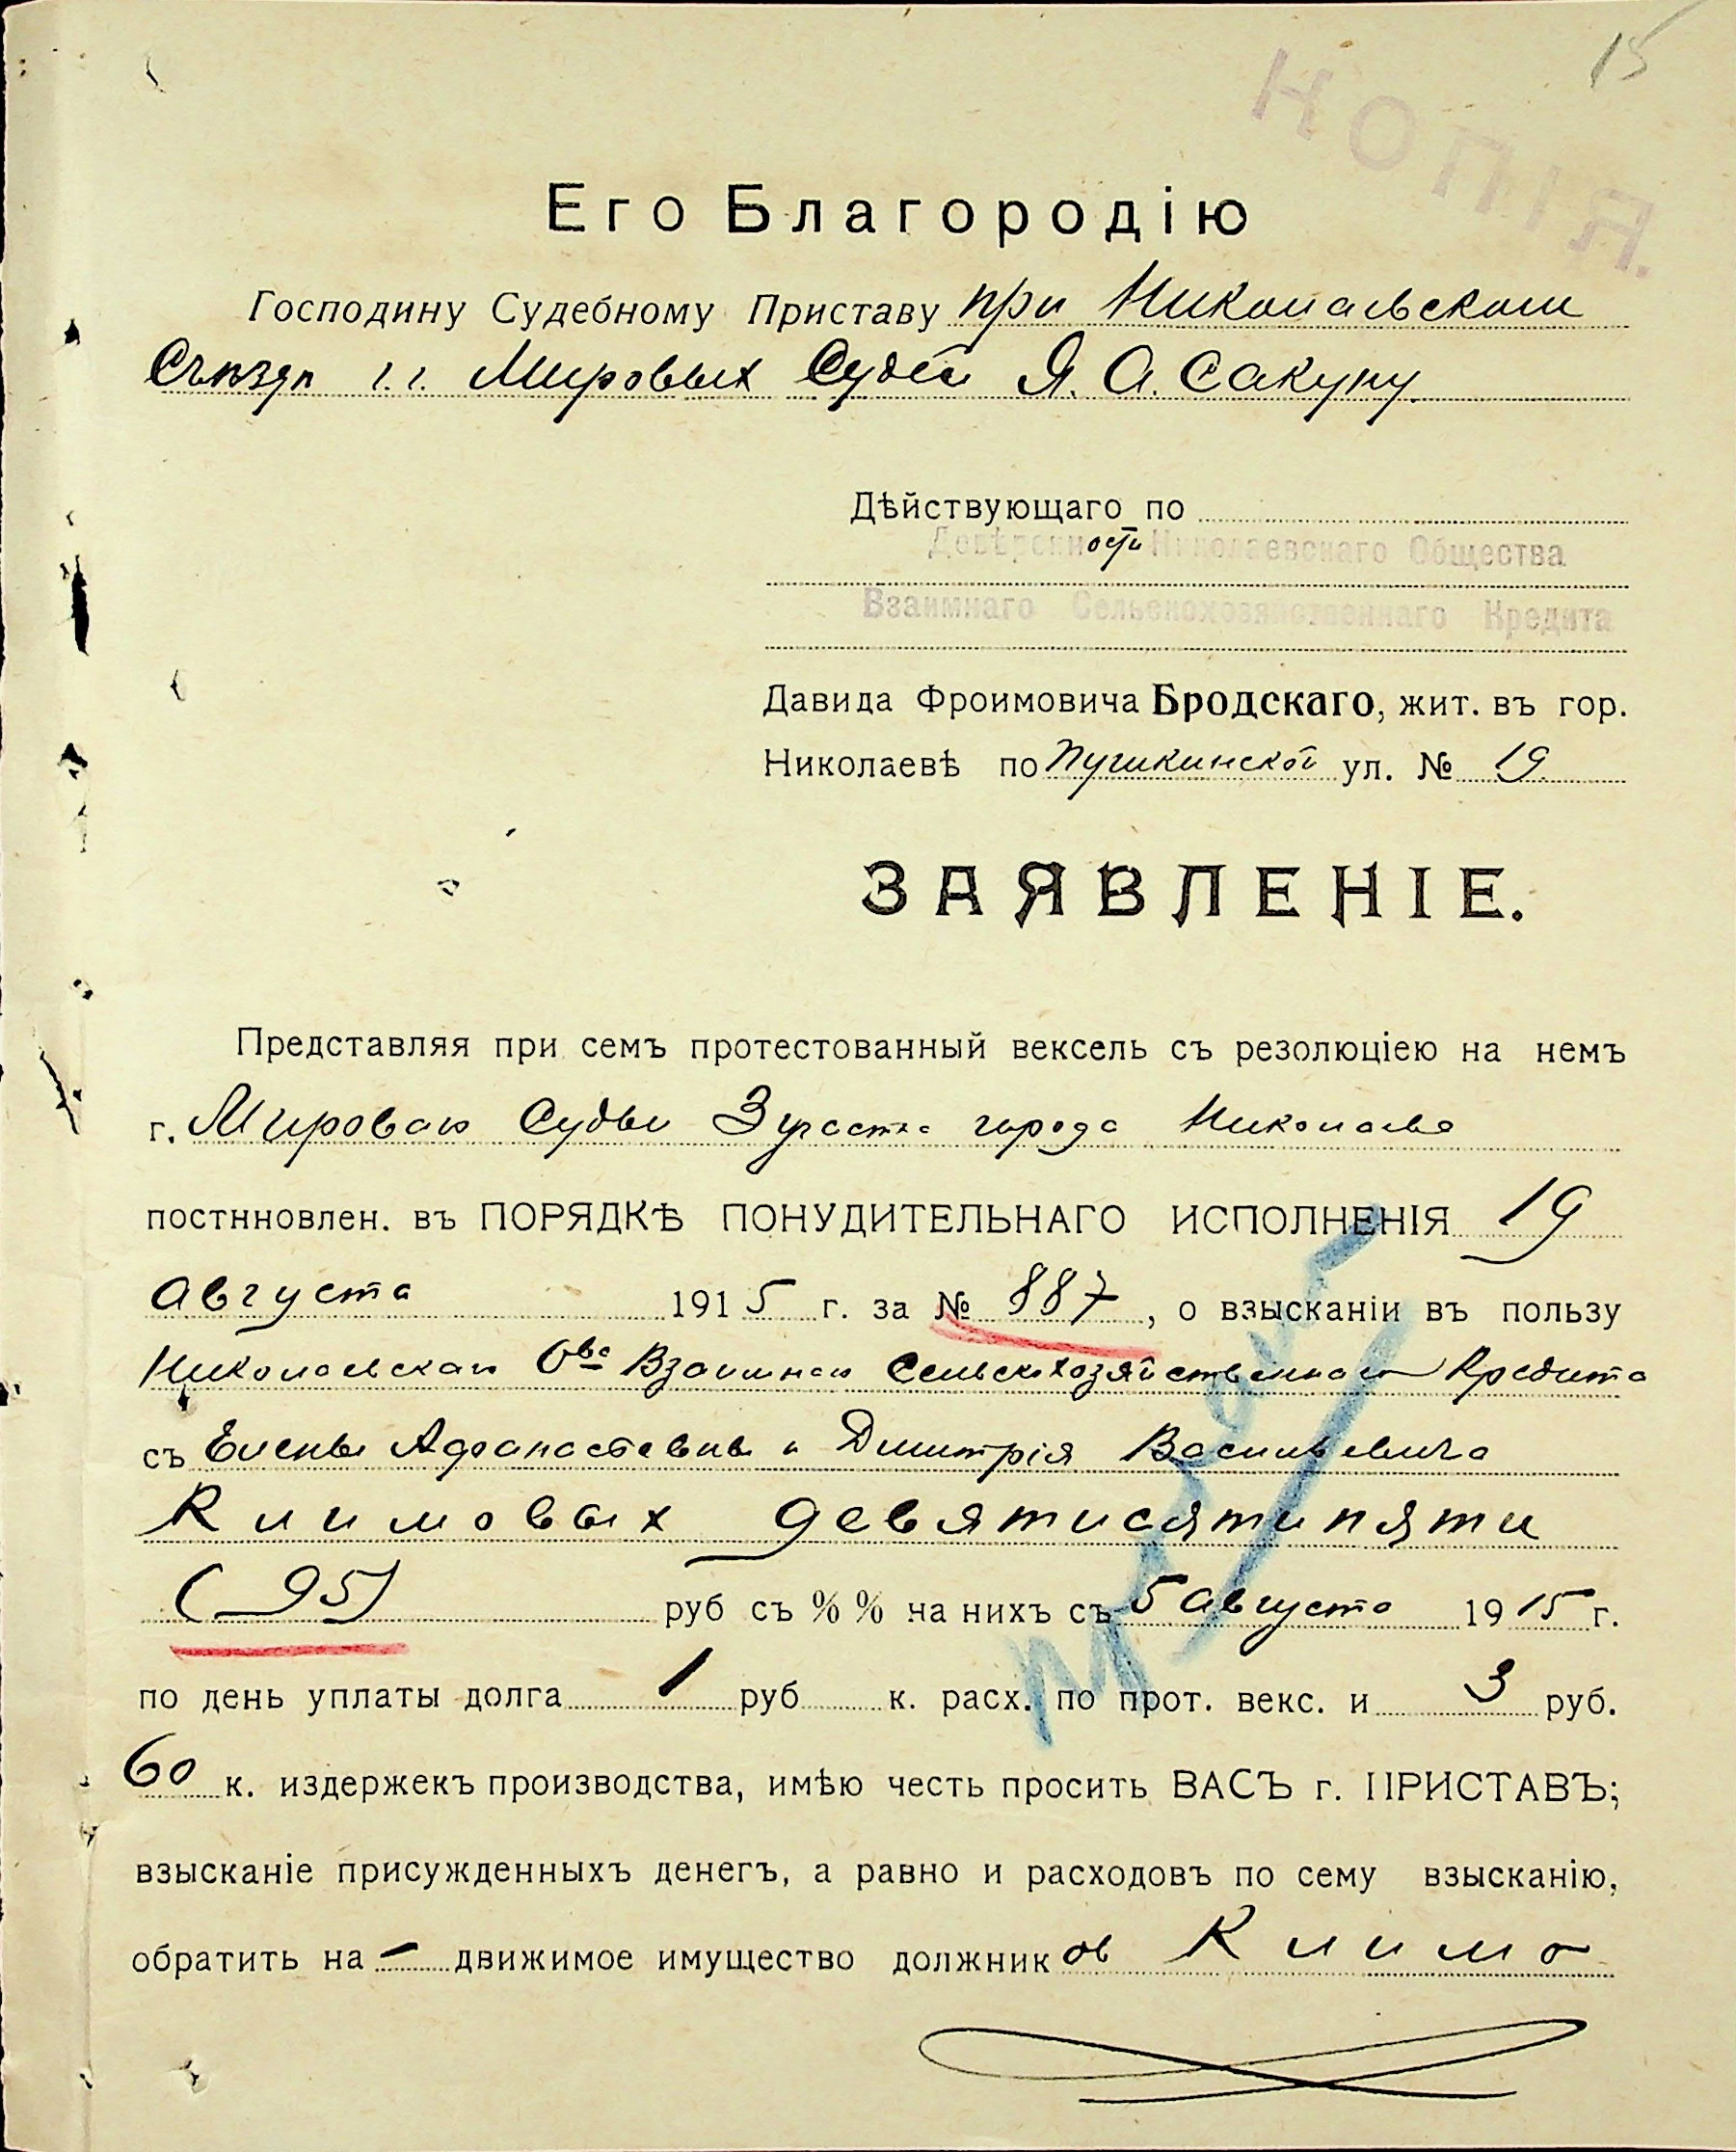 15
КОПІЯ.
Его Благородію
Господину Судебному Приставу при Николаевском
Съѣздѣ г.г. Мировых Судей Я. А. Сакуну.
Дѣйствующаго по
Довѣренности Николаевскаго Общества
Взаимнаго Сельскохозяйственнаго Кредита
Давида Фроимовича Бродскаго, жит. въ гор.
Николаевѣ по Пушкинской ул. № 19
ЗАЯВЛЕНІЕ.
Представляя при семъ протестованный вексель съ резолюціею на немъ
г. Мирового Судьи 3 участка города Николаева
постнновлен. въ ПОРЯДКѢ ПОНУДИТЕЛЬНАГО ИСПОЛНЕНІЯ 19
августа 1915 г. за № 887, о взысканіи въ пользу
Николаевскаго О-ва Взаимнаго Сельскохозяйственнаго Кредита
съ Елены Афанасьевны и Димитрія Васильевича
Климовых девятисяти пяти
(95) руб съ % % на нихъ съ 5 августа 1915 г.
по день уплаты долга 1 руб к. расх. по прот. векс. и 3 руб.
60 к. издержекъ производства, имѣю честь просить ВАСЪ г. ПРИСТАВЪ;
взысканіе присужденныхъ денегъ, а равно и расходовъ по сему взысканію,
обратить на — движимое имущество должников Климо